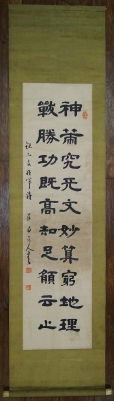 神策究天文妙算窮地理
戰勝功既高知足願云止
乙支將軍詩